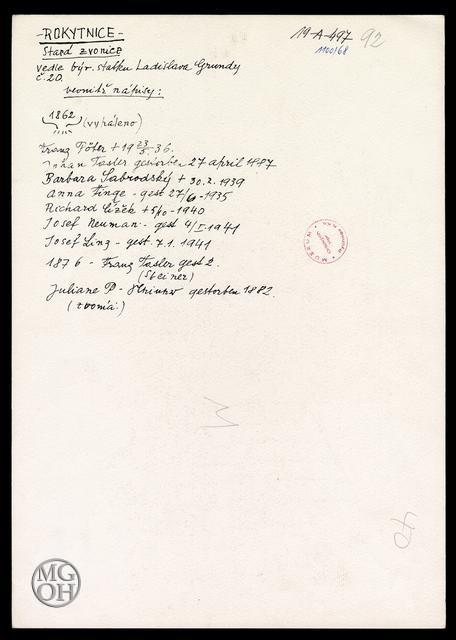 -ROKYTNICE-
19-A-497 92
1100/68
Stará zvonice
vedle býv. statku Ladislava Grundy
č. 20.
uvnitř nápisy:
1862 (vypáleno)
Franz + 19 23/5 36.
Fasler gestorben 27 april 1887
Barbara Sabrodský + 30.2. 1939
Anna Finge - gest 27/6 - 1935
Richard + 5/10 - 1940
Josef Neuman - gest 4/I 1941
Josef Linz - gest. 7.1. 1941
1876 - Franz Fasler gest 2.
(Steiner)
Juliane P- gestorben 1882.
MUZEUM
MG
OH